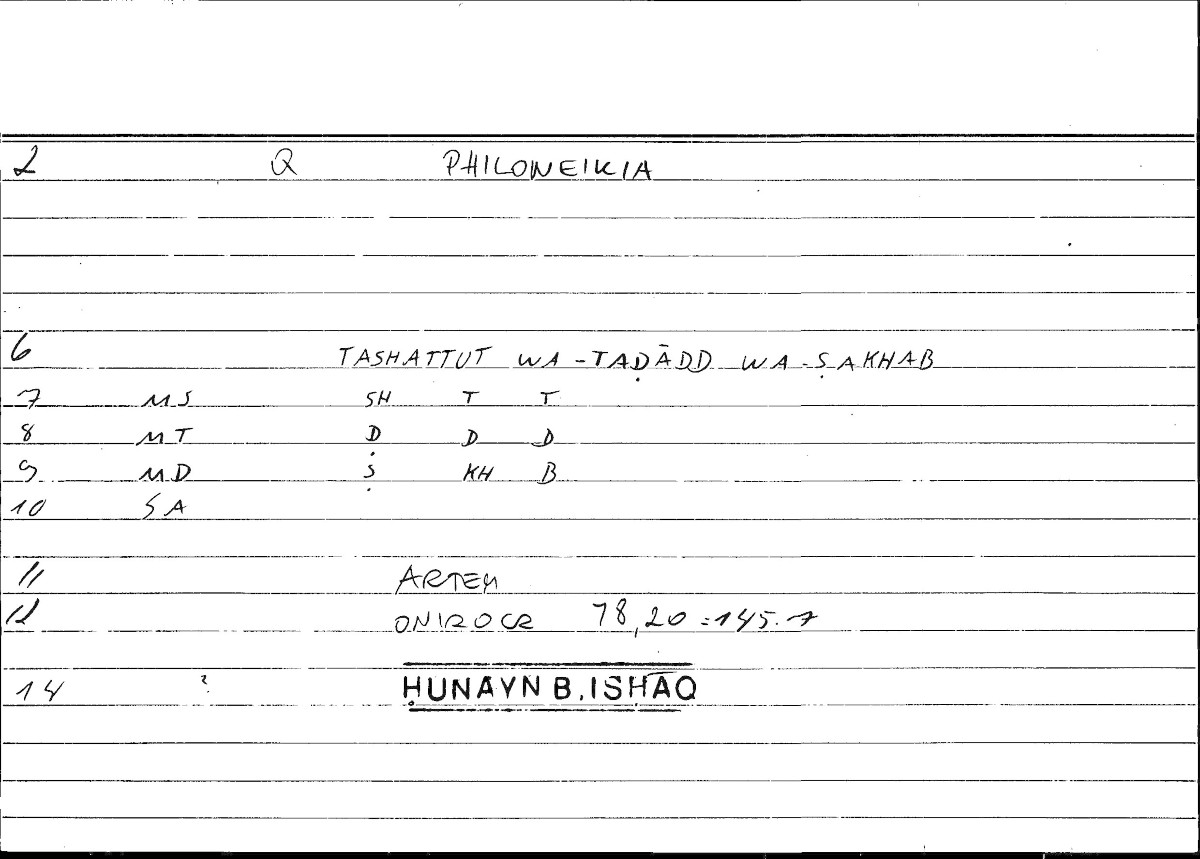 2 Q PHILONEIKIA
6 TASHATTUT WA-TAḌĀDD WA-ṢAKHAB
7 MS SH T T
8 MT Ḍ D D
9 MD Ṣ KH B
10 SA
11 ARTEM
12 ONIROCR 78,20 = 145.7
14 ? ḤUNAYN B. ISḤĀQ